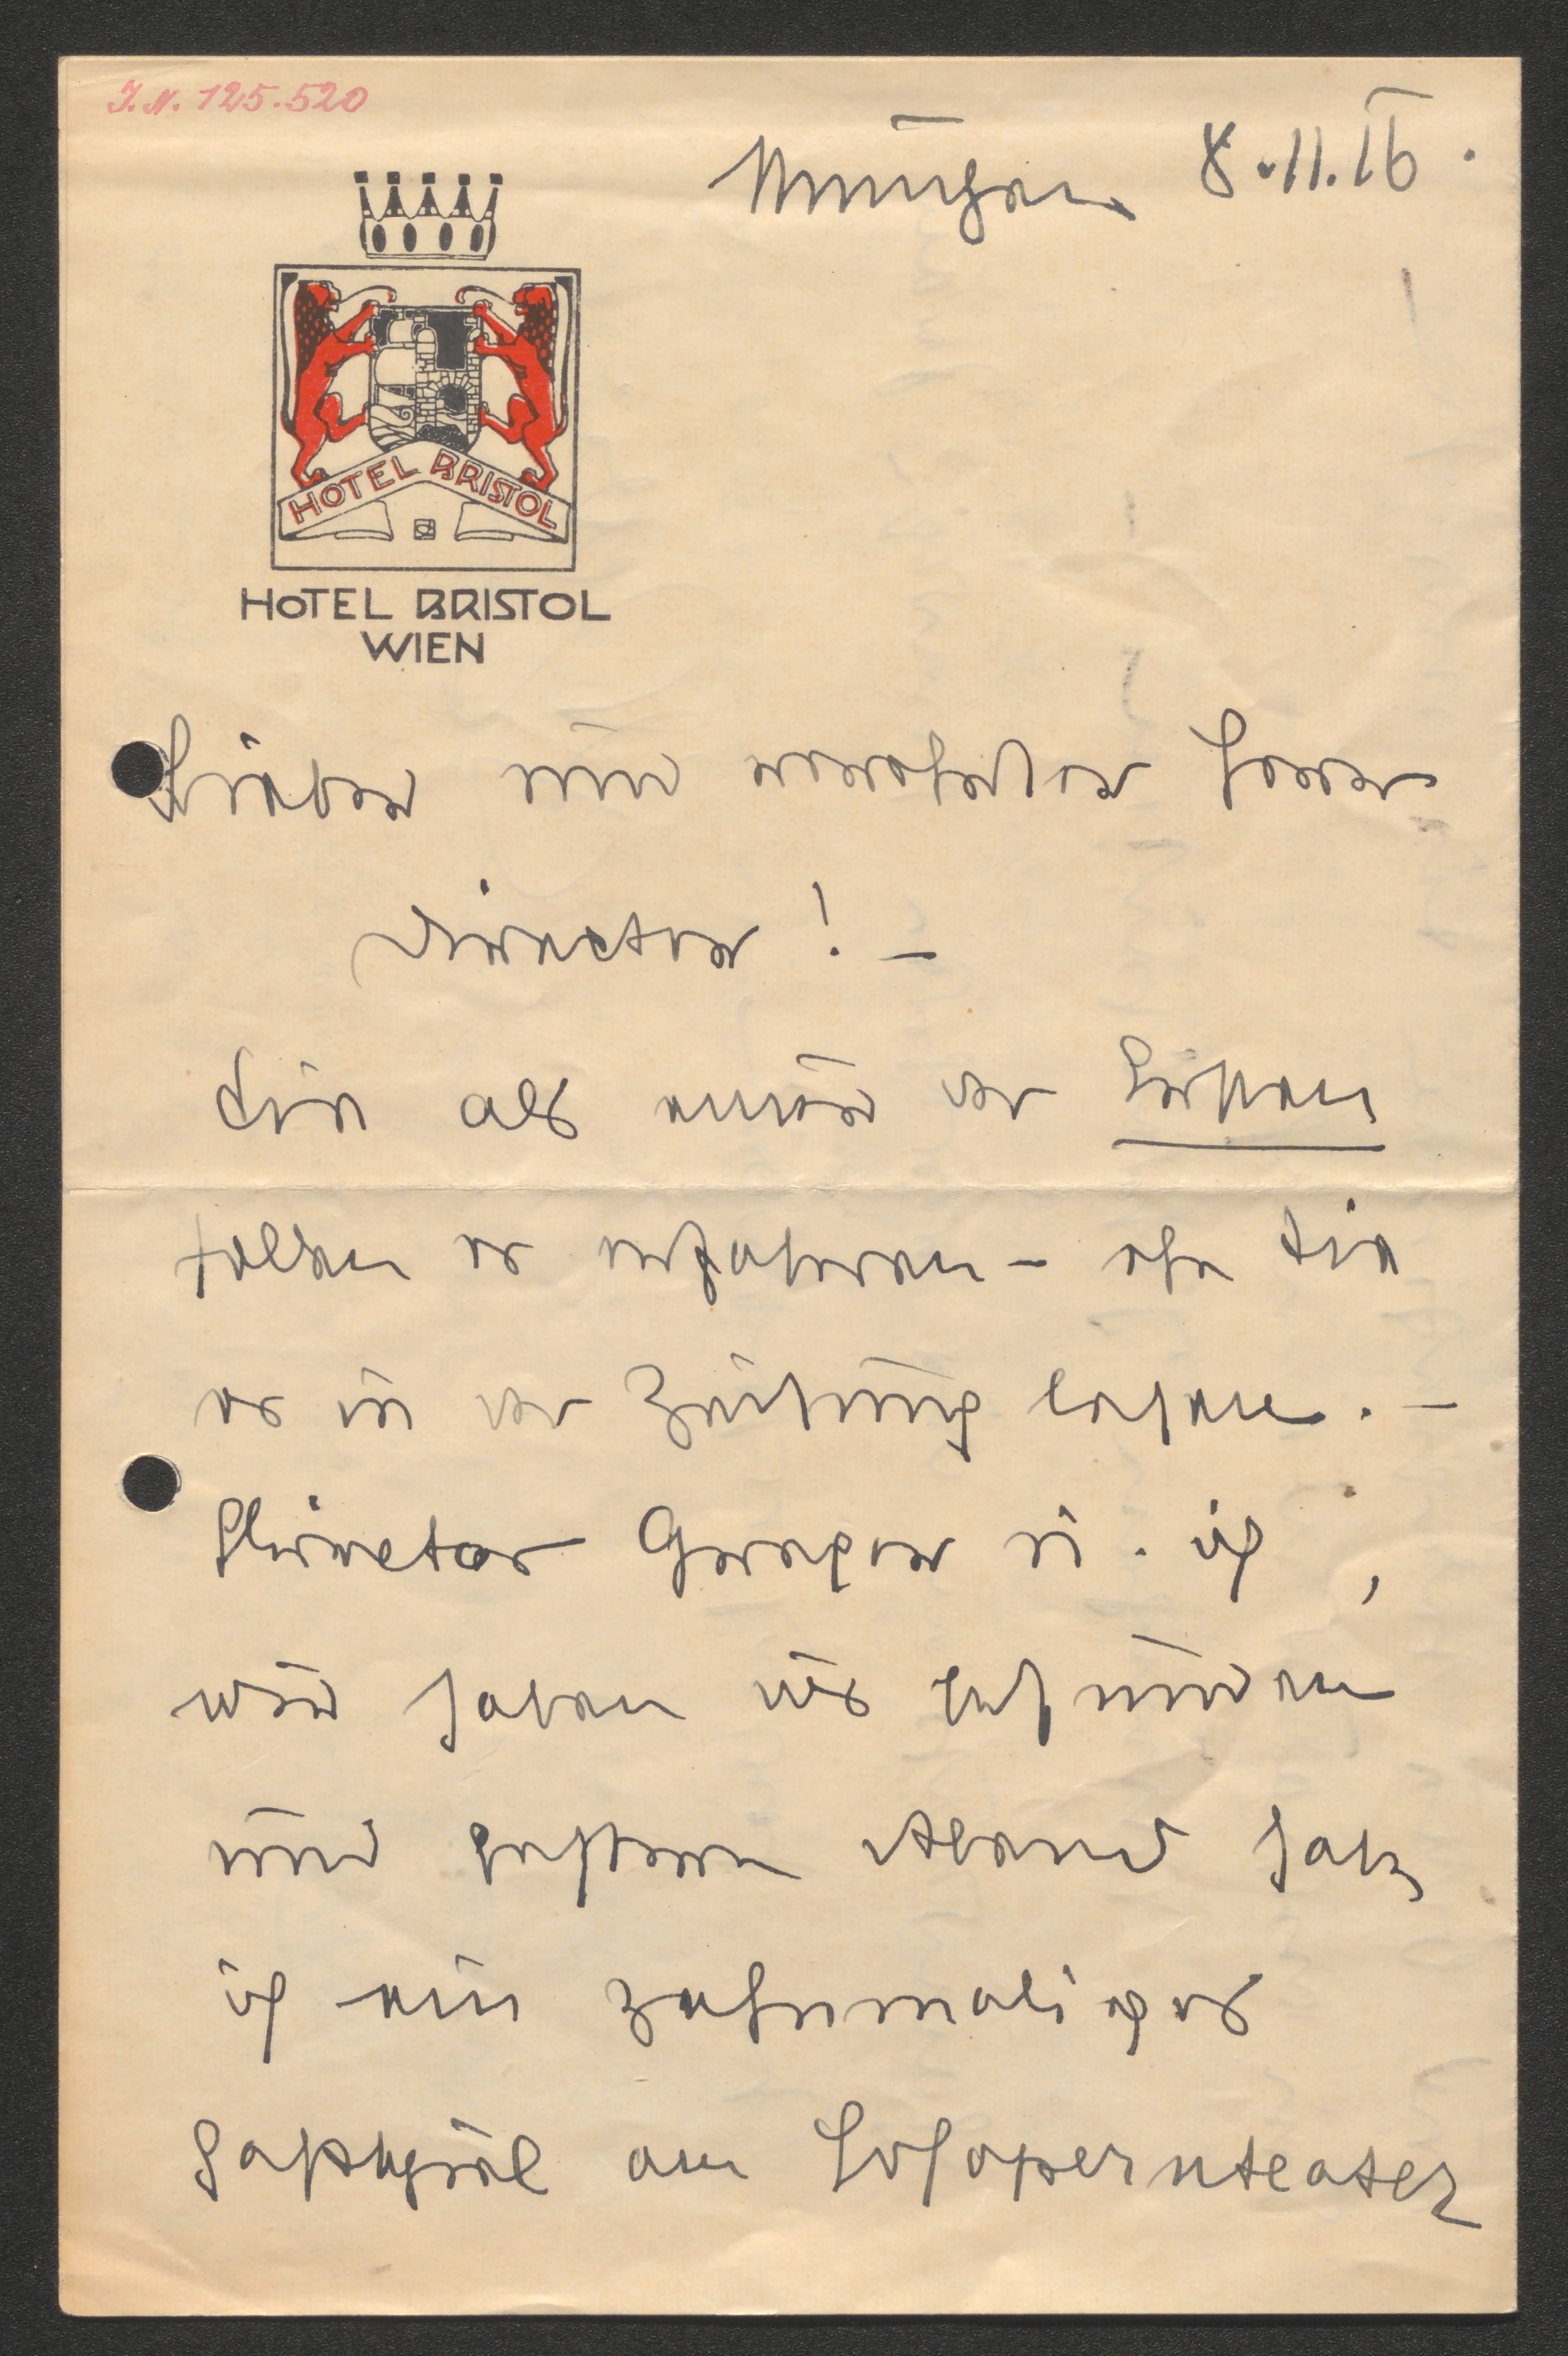 I.N. 125.520
München 8.11.16.
HOTEL BRISTOL
HOTEL BRISTOL
WIEN
Lieber und verehrter Herr
Director! –
Sie als einer der Ersten
sollen es erfahren – ehe Sie
es in der Zeitung lesen. –
Director Gregor u. ich,
wir haben uns gefunden
und gestern Abend hab
ich ein zehnmaliges
Gastspiel am Hofopernteater